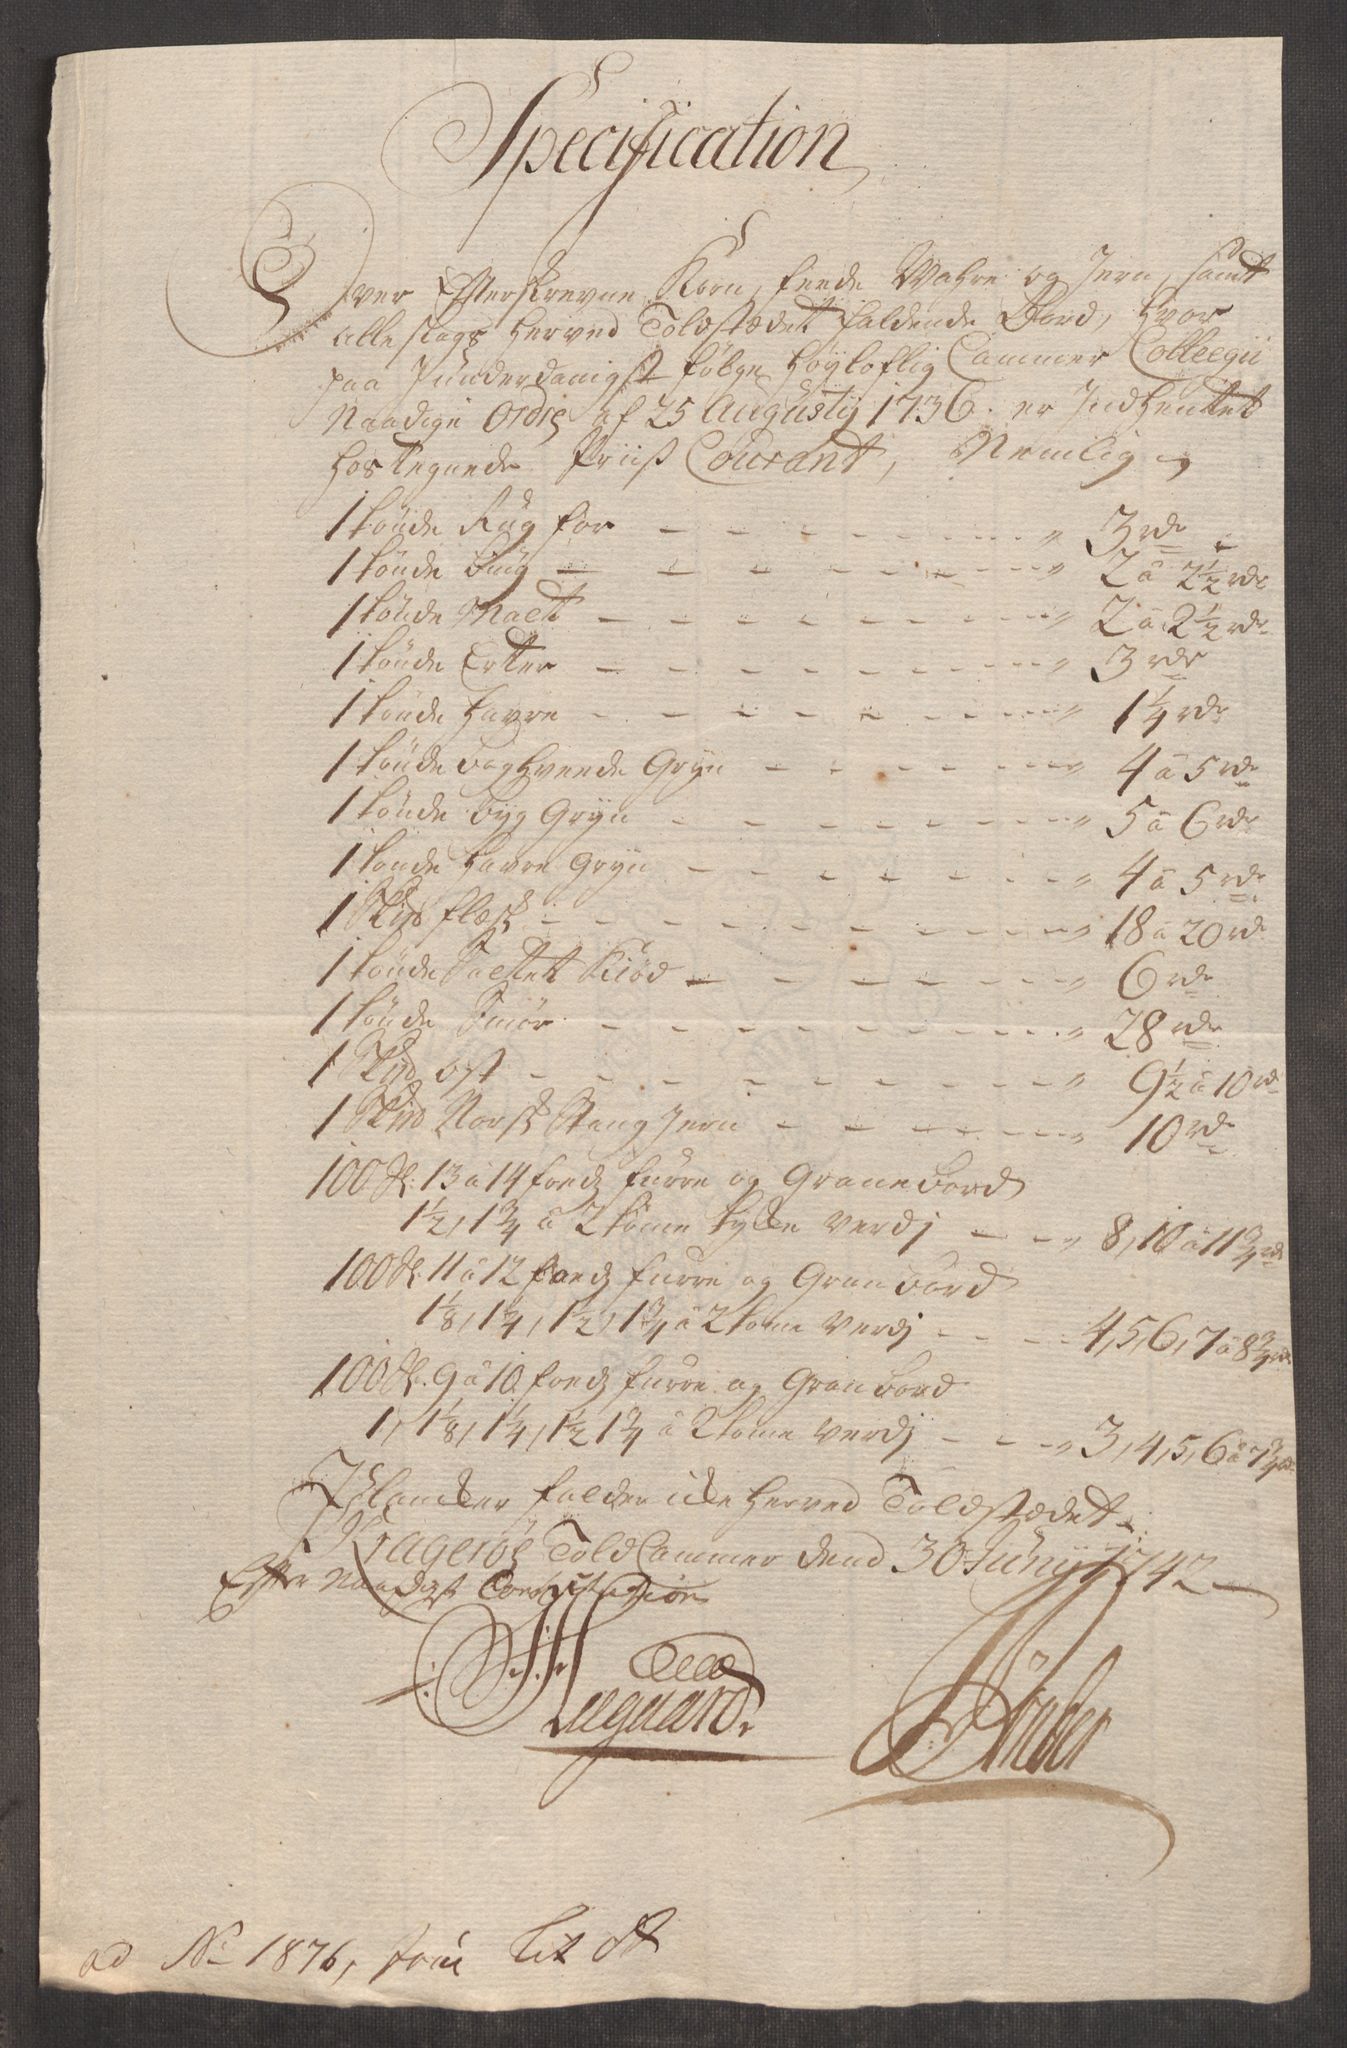 Specification
Over Efterskrevne Korn, feede Wahre og Jern, samt
alle slags herved Toldstædet faldende Bord, hvor
paa Junderdanigst følge Høyloflig Cammer Collegii
Naadige Ordre af 25 Augustij 1736. er Indhentet
hostegnede Priiß Courant, Nemlig
1 tønde Rug for - - - - - - - - " 3 rdr
1 tønde Biug - - - - - - - - " 2 â 2 1/2 rdr
1 tønde Malt - - - - - - - - " 2 â 2 1/2 rdr
1 tønde Erter - - - - - - - - " 3 rdr
1 tønde Havre - - - - - - - - " 1 1/4 rdr
1 tønde Boghveede Gryn - - - - - - " 4 â 5 rdr
1 tønde Byg Gryn - - - - - - - " 5 â 6 rdr
1 tønde Havre Gryn - - - - - - - " 4 â 5 rdr
1 Sk℔ flesk - - - - - - - - - " 18 â 20 rdr
1 tønde Saltet Kiød - - - - - - - " 6 rdr
1 tønde Smør - - - - - - - - " 28 rdr
1 Sk℔ ost - - - - - - - - - " 9 1/2 â 10 rdr
1 Sk℔ Norsk Stang Jern - - - - - " 10 rdr
100 st: 13 â 14 foeds furre og Granebord
1 1/2, 1 3/4 â 2 tomme tykke Verdj - - " 8, 10 â 11 3/4 rdr
100 st: 11 â 12 foeds furre og Granbord
1 1/8, 1 1/4, 1 1/2, 1 3/4 â 2 tome Verdj - - - - 4, 5, 6, 7 â 8 3/4 rdr
100 st. 9 â 10 foeds furre og Granbord
1, 1 1/8, 1 1/4, 1 1/2 1 3/4 â 2 tome Verdj - - - " 3, 4, 5, 6 â 7 3/4 rdr
Planker falder icke herved Toldstædet.
Kragerøe Told Cammer dend 30 Junij 1742
Efter Naadigst Constitution
Aagaard.
ad No 1876, Lit